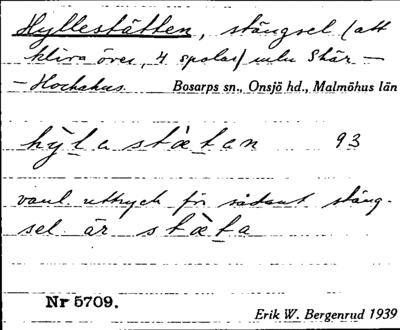 Hyllestätten, stängsel (att
kliva över, 4 spolar) mlm Skär —
— Hochahus. Bosarps sn., Onsjö hd., Malmöhus län
hy̩la stæ̀tan 93
vanl uttryck för sådant stäng-
sel är stæ̀ta
Nr 5709.
Erik W. Bergenrud 1939